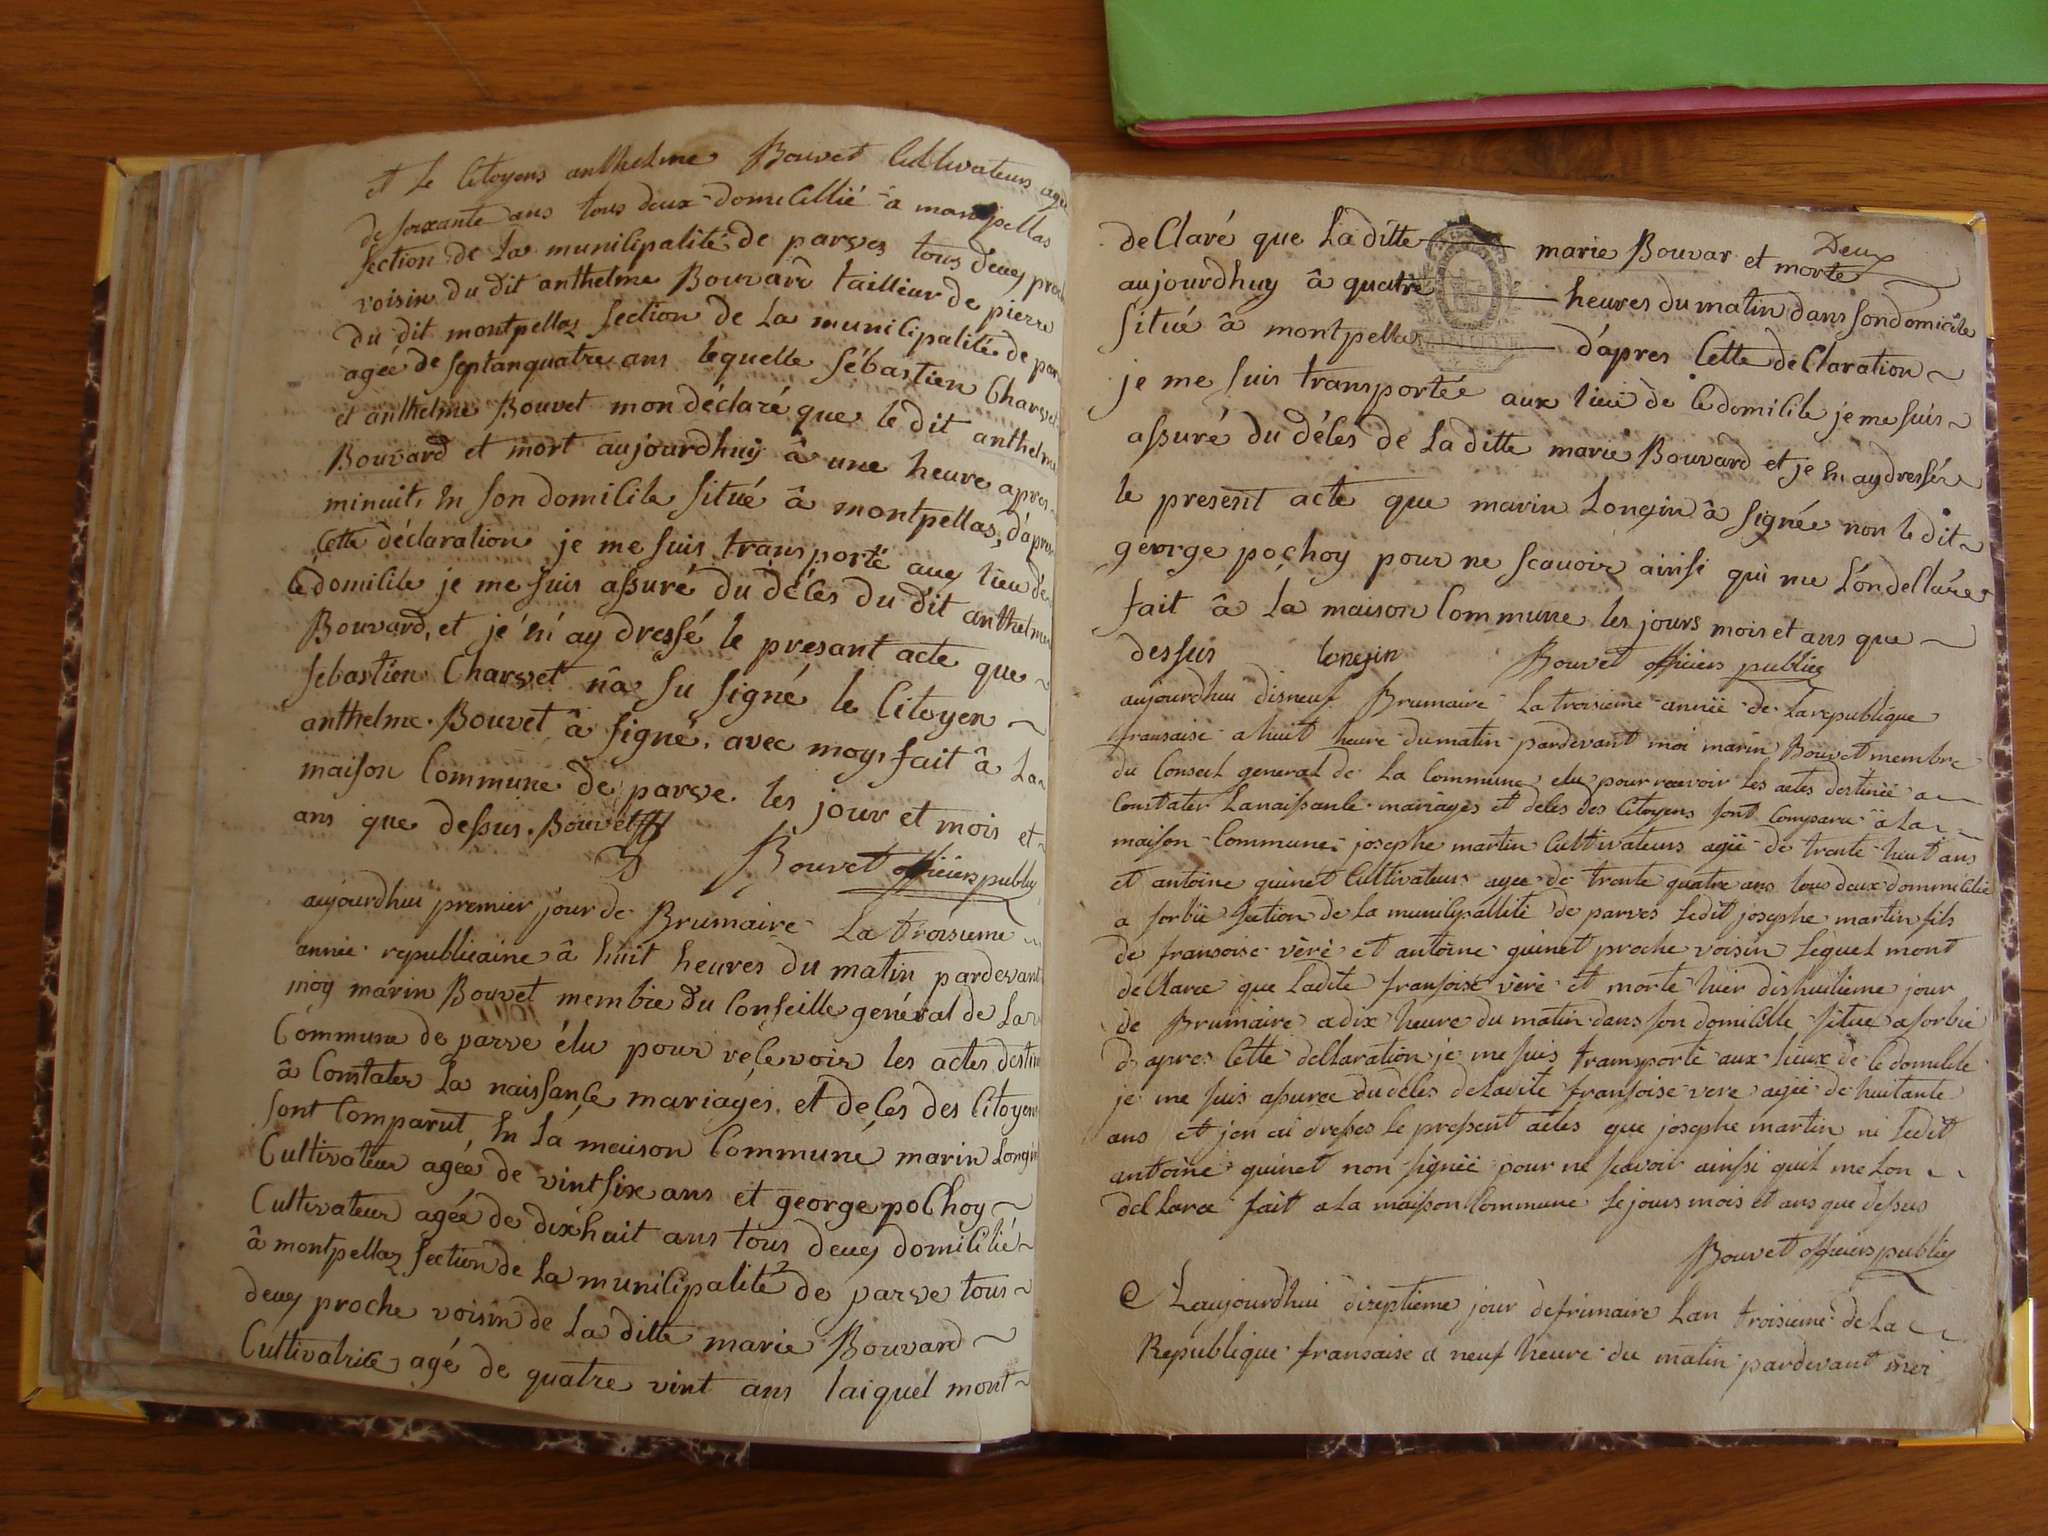 et le Citoyens anthelme Bouvet Cultivateurs agée
de soixante ans tous deux domicillié â montpellas
section de La municipalité de parves tous deux proche
voisin du dit anthelme Bouvard tailleur de pierre
du dit montpellaz section de La municipalité de par
agée de septanquatre ans lequelle sébastien Charvet
et anthelme Bouvet mon déclaré que le dit anthelme
Bouvard et mort aujourdhuy â une heure apres
minuit, en son domicile situé â montpellas, d'apres
Cette déclaration je me suis transporté aux lieu de
ce domicile je me suis assuré du décés du dit anthelme
Bouvard, et je n'ay dressé le presant acte que
sebastien Charvet nâ su signé le Citoyen
anthelme Bouvet â signé, avec moy, fait â La
maison Commune de parve les jour et mois et
ans que dessus. Bouvet
Bouvet officiers publiq
aujourdhui premier jour de Brumaire La troisieme
année republicaine â huit heures du matin pardevant
moy marin Bouvet membre du Conseille genéral de La
Commune de parve élu pour recevoir les actes destiné
â Constater La naissance mariages, et deces des Citoyens
sont Comparut, en La maison Communé marin Longin
Cultivateur agée de vint six ans et george pochoy
Cultivateur agée de dixhuit ans tous deux domicilié
â montpellaz section de La municipalité de parve tous
deux proche voisin de La ditte marie Bouvard
Cultivatrice agé de quatre vint ans laiquél mont
Deux
deClaré que La ditte marie Bouvar et morte
aujourdhuy â quatre heures du matin dans son domicile
situé â montpellas d'apres Cette deClaration
je me suis transportée aux lieu de ce domicile je me suis
assuré du déces de La ditte marie Bouvard et je n ay dressér
le present acte que marin Longin â signée non le dit
george pochoy pour ne scavoir ainsi qui me L'on declarer
fait â La maison Commune les jours mois et ans que
dessus longin Bouvet officiers publiq
aujourdhui disneuf Brumaire La troisieme année de La republique
fransaise a huit heure du matin pardevant moi marin Bouvet membre
du Conseil general de La Commune elu pour recevoir Les actes destinée a
Constater La naissance mariages et deces des Citoyens sont Comparu â La
maison Commune josephe martin Cultivateurs agée de trente huit ans
et antoine quinet Cultivateur agee de trente quatre ans tous deux dommicilié
a sorbié section de La municipallité de parves Ledit josephe martin fils
de fransoise véré et antoine quinet proche voisin Lequel mont
declarée que Ladite fransoise véré et morte hier dishuitieme jour
de Brumaire a dix heure du matin dans son domicille situe a sorbié
d apres Cette declaration je me suis transporté aux lieux de Ce domicile
je me suis asurée du deces de Ladite fransoise vere agée de huitante
ans et jen ai dresses Le present actes que josephe martin ni Ledit
antoine quinet non signée pour ne scavoir ainssi quil me Lon
declaree fait a La maisson Commune Le jours mois et ans que dessus
Bouvet officiers publiq
Laujourdhui diseptieme jour defrimaire Lan troisieme de La
Republique fransaise a neuf heure du matin pardevant moi